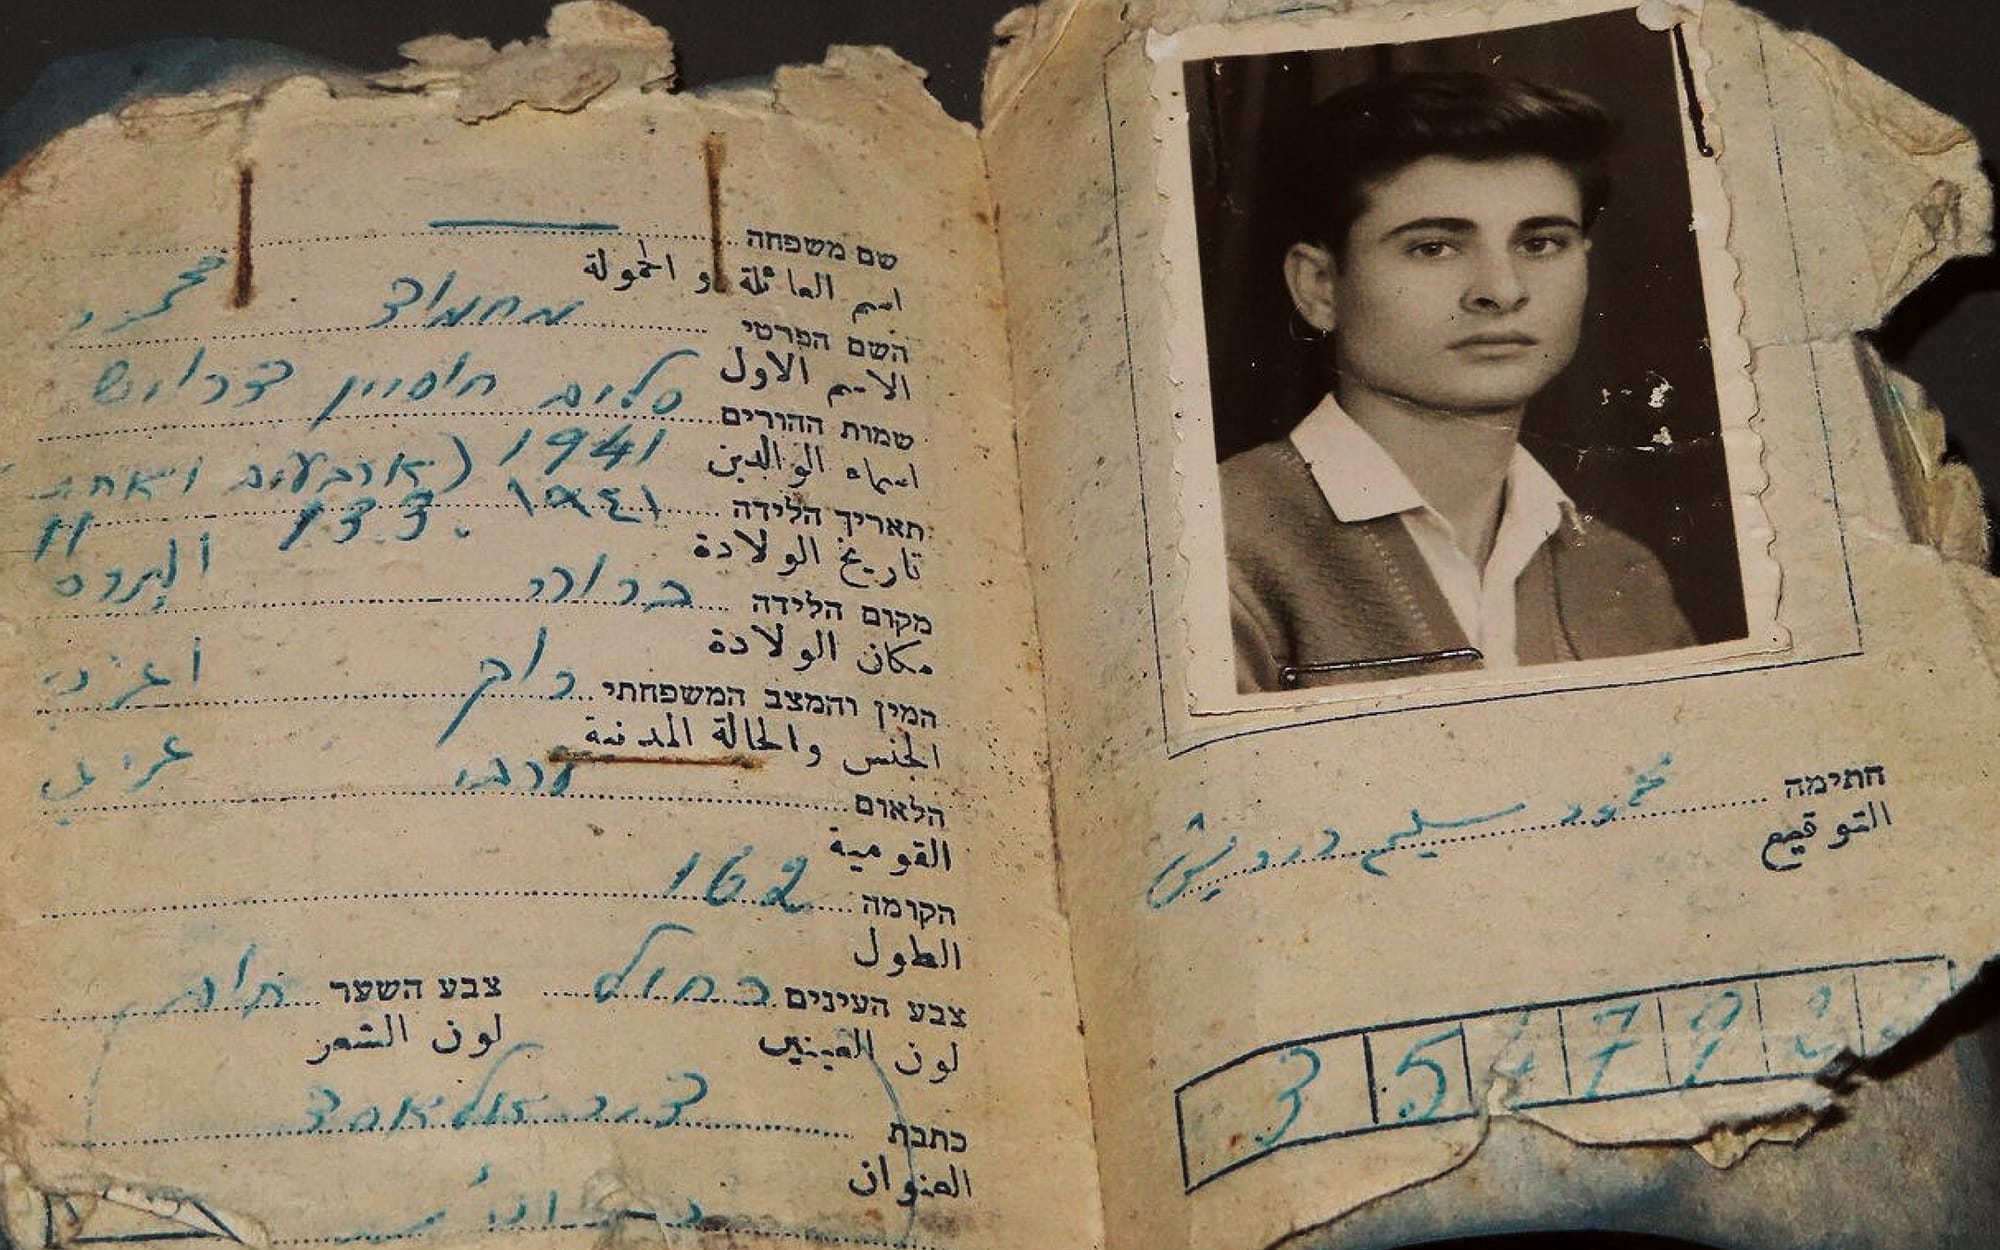 שם משפחה
اسم العائلة او الحمولة
השם הפרטי מחמוד محمود
الاسم الاول
שמות ההורים סלים חוסיין דרויש
اسماء الوالدين
תאריך הלידה 1941 (ארבעים ואחת
تاريخ الولادة ١٩٤١
מקום הלידה ברווה البروه
مكان الولادة
המין והמצב המשפחתי רווק اعزب
الجنس والحالة المدنية
הלאום ערבי عربي
القومية
הקומה 162
الطول
צבע העינים כחול צבע השער חום
لون العينين لون الشعر
כתבת דיר אל אסד
العنوان
חתימה محمود سليم درويش
التوقيع
3 5 4 7 9 2